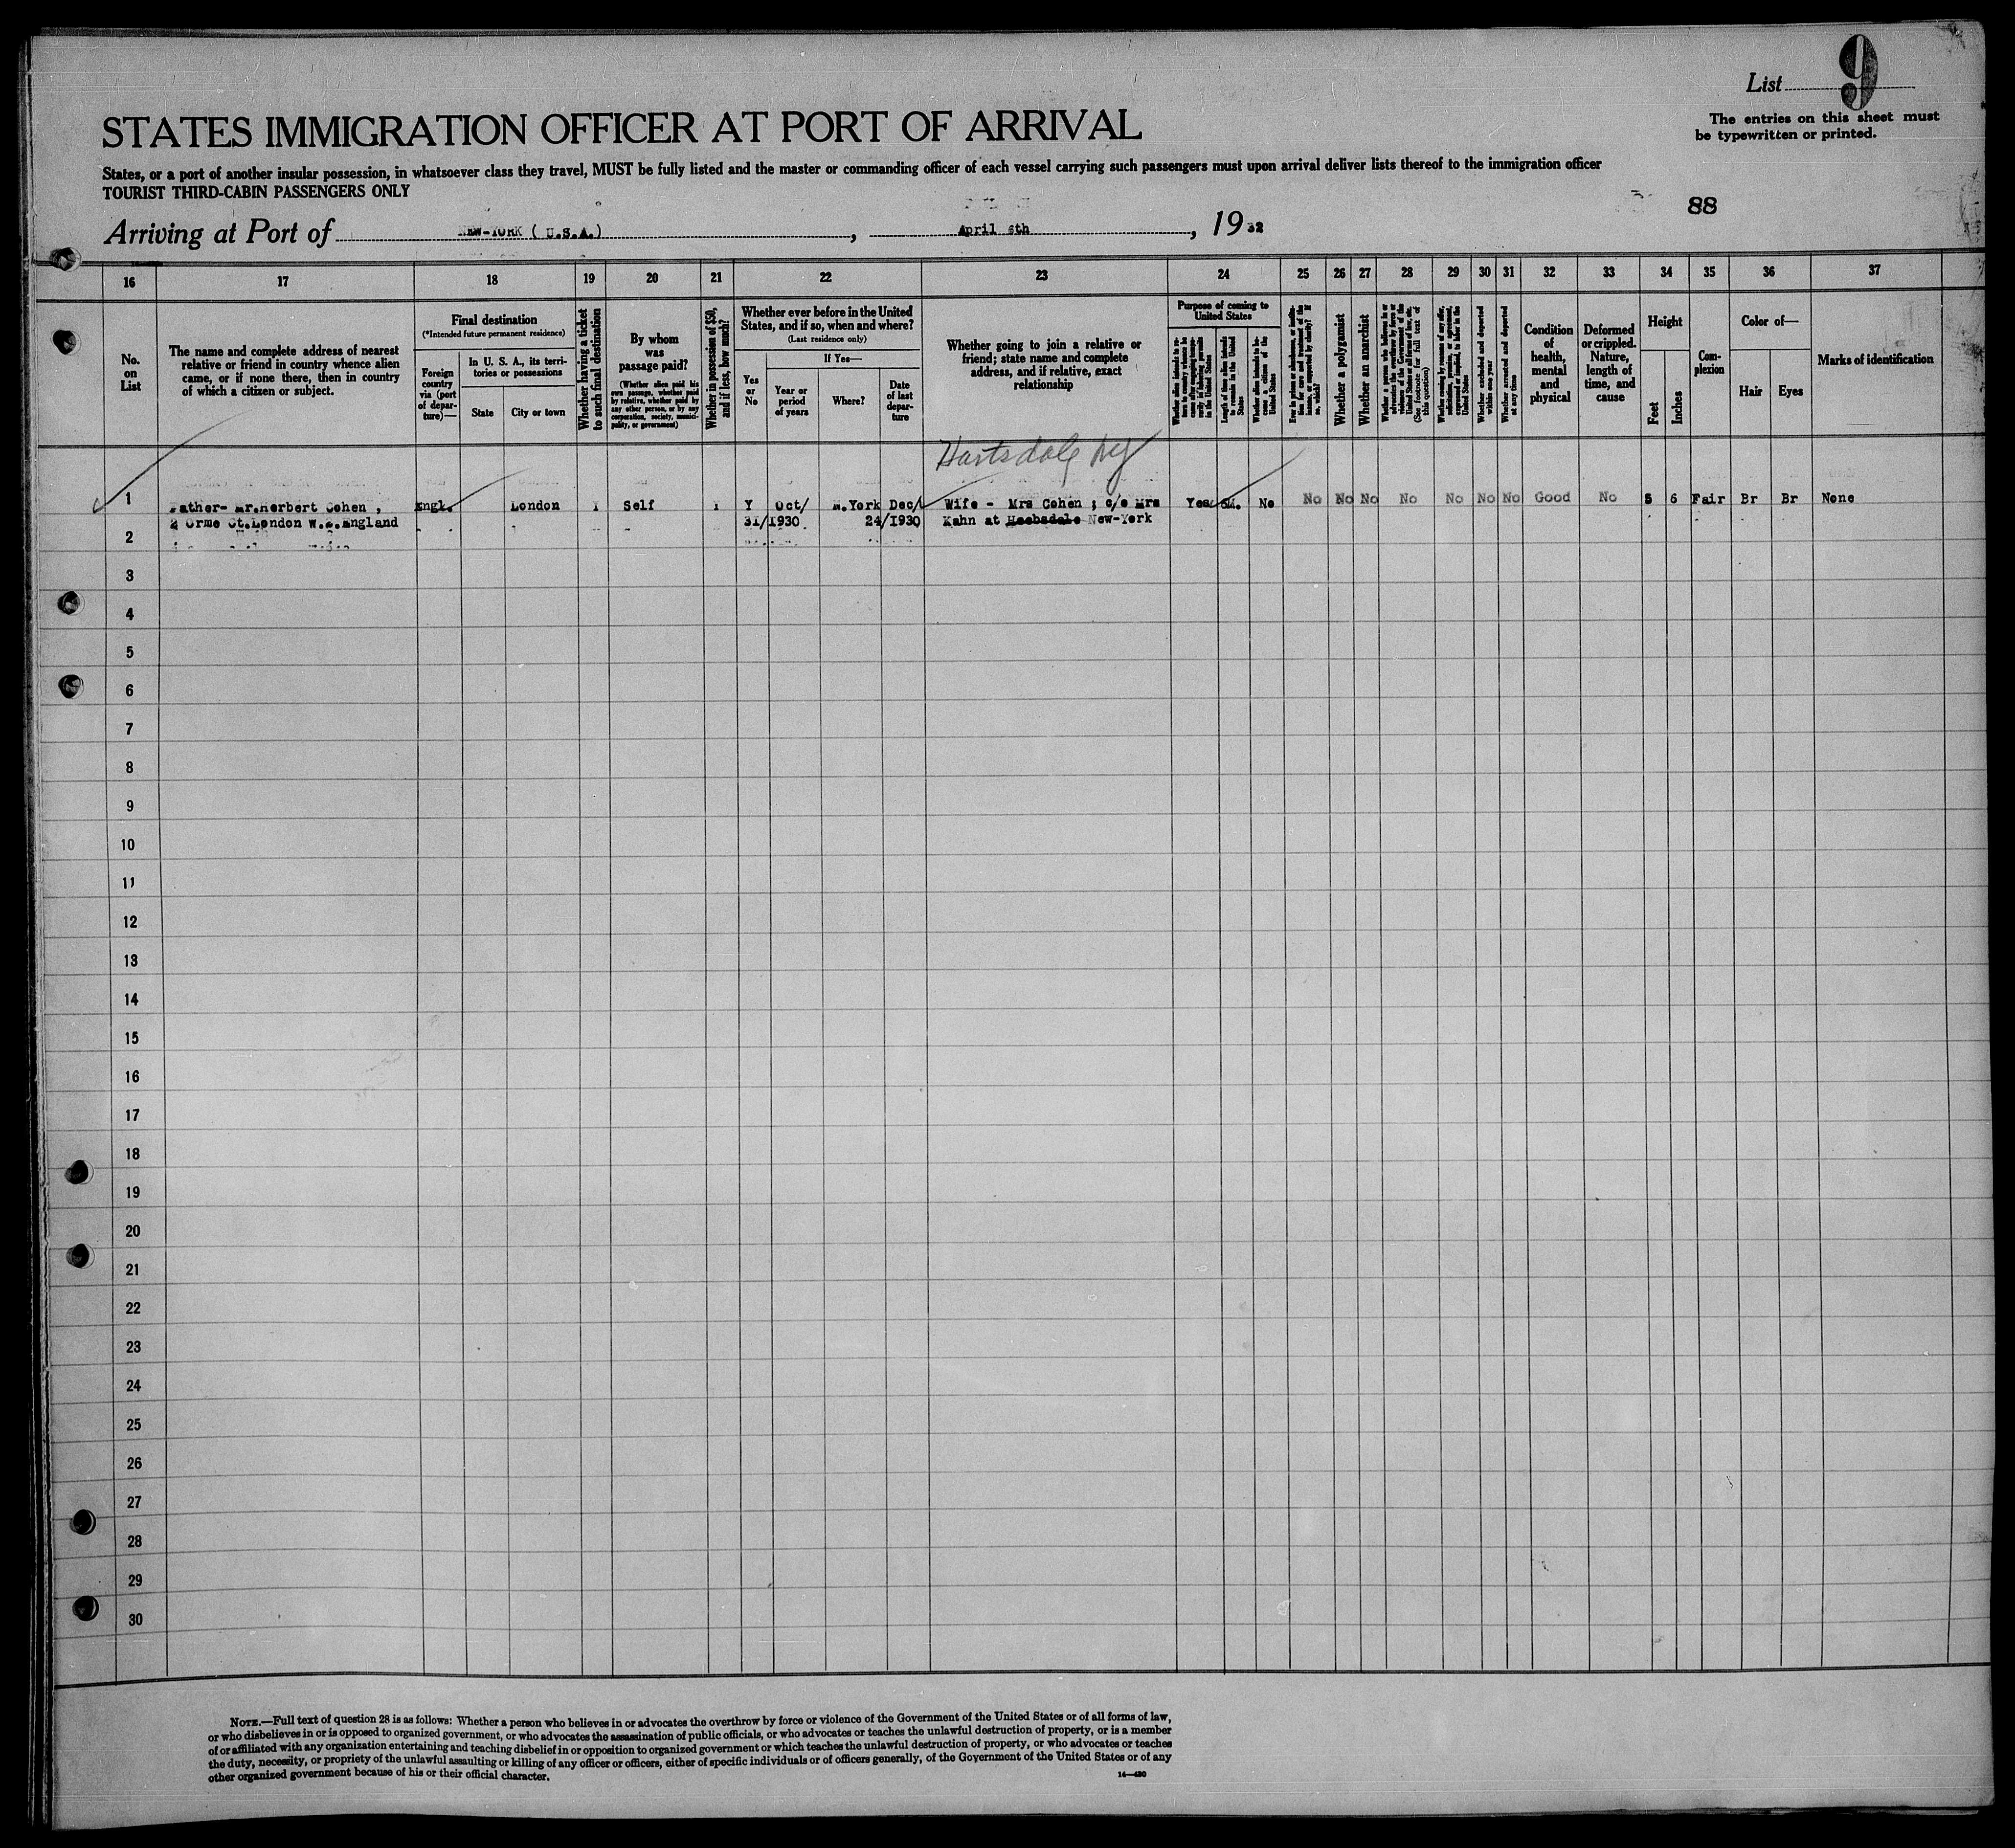 List 9
The entries on this sheet must
be typewritten or printed.
STATES IMMIGRATION OFFICER AT PORT OF ARRIVAL
States, or a port of another insular possession, in whatsoever class they travel, MUST be fully listed and the master or commanding officer of each vessel carrying such passengers must upon arrival deliver lists thereof to the immigration officer
TOURIST THIRD-CABIN PASSENGERS ONLY
88
Arriving at Port of NEW-YORK ( U.S.A.) , April 6th , 1932
16 17 18 19 20 21 22 23 24 25 26 27 28 29 30 31 32 33 34 35 36 37
No.
on
List
The name and complete address of nearest
relative or friend in country whence alien
came, or if none there, then in country
of which a citizen or subject.
Final destination
(*Intended future permanent residence)
Foreign
country
via (port
of depar-
ture)—
In U. S. A., its terri-
tories or possessions
State
City or town
Whether having a ticket
to such final destination
By whom
was
passage paid?
(Whether alien paid his
own passage, whether paid
by relative, whether paid by
any other person, or by any
corporation, society, munici-
pality, or government)
Whether in possession of $50,
and if less, how much?
Whether ever before in the United
States, and if so, when and where?
(Last residence only)
Yes
or
No
If Yes—
Year or
period
of years
Where?
Date
of last
depar-
ture
Whether going to join a relative or
friend; state name and complete
address, and if relative, exact
relationship
Purpose of coming to
United States
Length of time alien intends
to remain in the United
States
Whether alien intends to be-
come a citizen of the
United States
Whether a polygamist
Whether an anarchist
(See footnote for full text of
this question)
Whether excluded and deported
within one year
Whether arrested and deported
at any time
Condition
of
health,
mental
and
physical
Deformed
or crippled.
Nature,
length of
time, and
cause
Height
Feet
Inches
Com-
plexion
Color of—
Hair
Eyes
Marks of identification
Hartsdale NY
1 Father- Mr.Herbert Cohen , Engl. London Self Y Oct/ N.York Dec/ Wife - Mrs Cohen ; c/o Mrs Yes 6M. No No No No No No No No Good No 5 6 Fair Br Br None
2 Orme Ct.London W.2.England 31/1930 24/1930 Kahn at New-York
2
3
4
5
6
7
8
9
10
11
12
13
14
15
16
17
18
19
20
21
22
23
24
25
26
27
28
29
30
NOTE.—Full text of question 28 is as follows: Whether a person who believes in or advocates the overthrow by force or violence of the Government of the United States or of all forms of law,
or who disbelieves in or is opposed to organized government, or who advocates the assassination of public officials, or who advocates or teaches the unlawful destruction of property, or is a member
of or affiliated with any organization entertaining and teaching disbelief in or opposition to organized government or which teaches the unlawful destruction of property, or who advocates or teaches
the duty, necessity, or propriety of the unlawful assaulting or killing of any officer or officers, either of specific individuals or of officers generally, of the Government of the United States or of any
other organized government because of his or their official character.
14—430